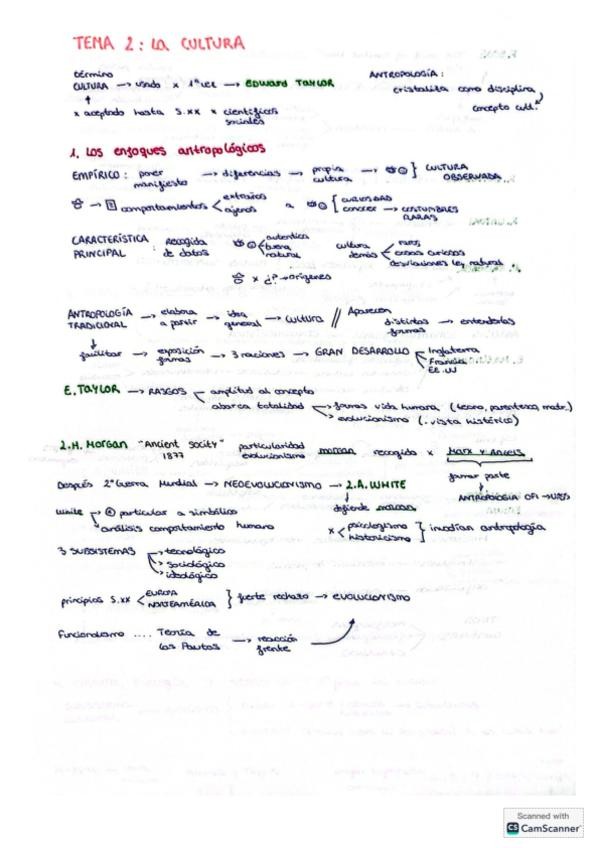 TEMA 2: LA CULTURA
término ANTROPOLOGÍA:
CULTURA → usado x 1ª vez → EDWARD TAYLOR cristaliza como disciplina
x aceptado hasta S.XX x científicos sociales concepto cult.
1. Los enfoques antropológicos
EMPÍRICO: poner manifiesto → diferencias → propia cultura → } CULTURA OBSERVADA
→ comportamientos < extraños ajenos a { CURIOSIDAD conocer → COSTUMBRES RARAS
CARACTERÍSTICA PRINCIPAL : Recogida de datos < autentica buena natural cultura demás < raros cosas curiosas desviaciones ley natural
x ¿? → orígenes
ANTROPOLOGÍA TRADICIONAL → elabora a partir → idea general → CULTURA // Aparecen distintas formas → entenderlas
facilitar → exposición formas → 3 naciones → GRAN DESARROLLO < Inglaterra Francia EE.UU
E. TAYLOR → RASGOS < amplitud al concepto
abarca totalidad → formas vida humana (tecno, parentesco, matr.)
→ evolucionismo (. vista histórico)
L.H. Morgan "Ancient Socity" 1877 particularidad evolucionismo morgan recogido x Marx y Angels
formar parte
Después 2ª Guerra Mundial → NEOEVOLUCIONISMO → L.A. WHITE ANTROPOLOGIA OFI → URSS
defiende morgan
White → particular a simbólico
"análisis comportamiento humano x < psicologismo historicismo } invadían antropología
3 SUBSISTEMAS → tecnológico
→ sociológico
→ ideológico
principios S.XX < EUROPA NORTEAMÉRICA } fuerte rechazo → EVOLUCIONISMO
Funcionalismo .... Teoría de las Pautas → reacción frente
Scanned with
CS CamScanner